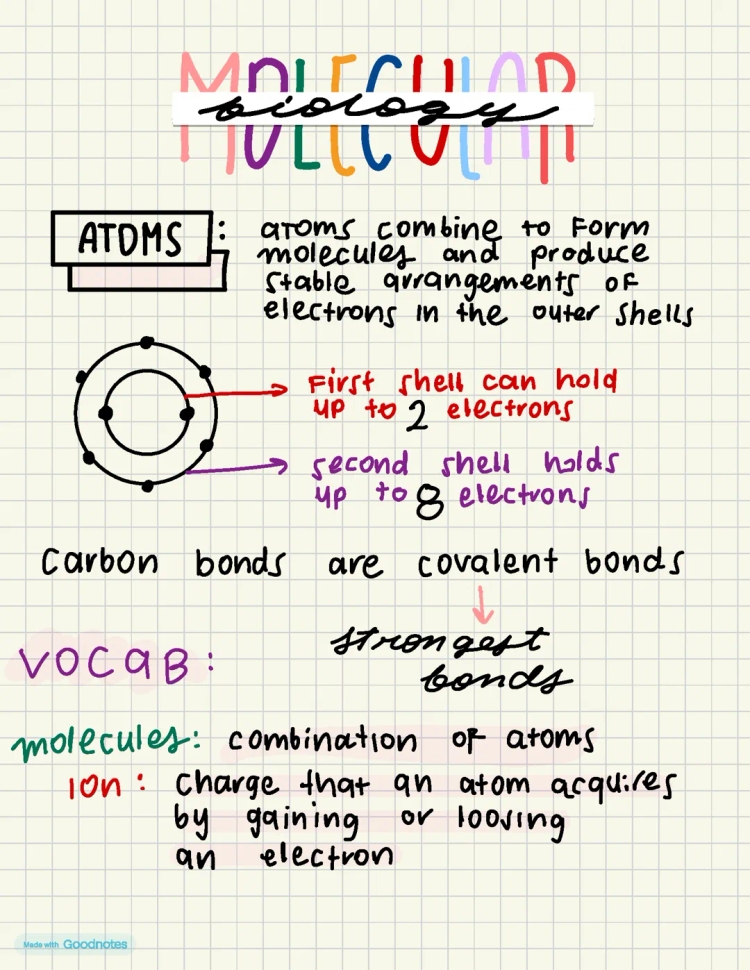 MOLECULAR
biology
ATOMS : atoms combine to form
molecules and produce
stable arrangements of
electrons in the outer shells
First shell can hold
up to 2 electrons
second shell holds
up to 8 electrons
Carbon bonds are covalent bonds
strongest
bonds
VOCAB:
molecules: combination of atoms
Ion: charge that an atom acquires
by gaining or loosing
an electron
Made with Goodnotes